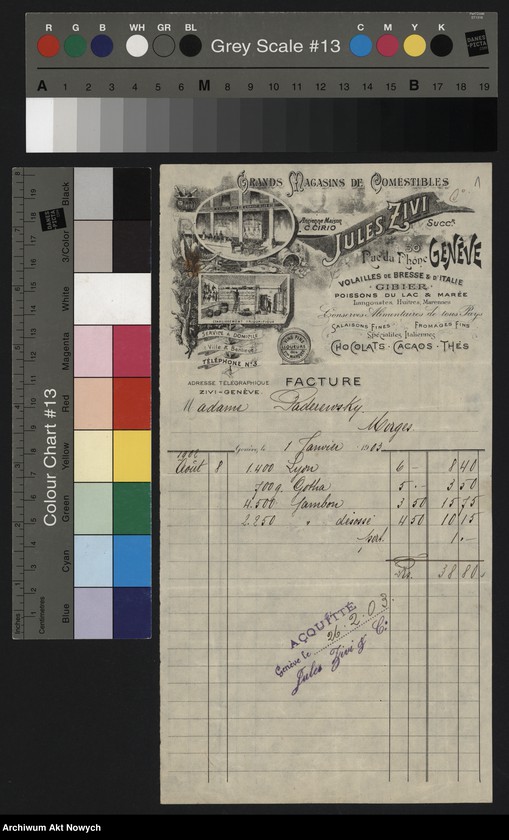 R G B WH GR BL Grey Scale #13 C M Y K
DANES-PICTA
A 1 2 3 4 5 6 M 8 9 10 11 12 13 14 15 B 17 18 19
Colour Chart #13
Blue Cyan Green Yellow Red Magenta White 3/Color Black
Inches
Centimetres
GRANDS MAGASINS DE COMESTIBLES
Ancienne Maison
C. CIRIO
JULES ZIVI
Succr
30
Rue du Rhône GENÈVE
VOLAILLES DE BRESSE & D'ITALIE
GIBIER
POISSONS DU LAC & MARÉE
Langoustes Huîtres Marennes
Conserves Alimentaires de tous Pays
SALAISONS FINES FROMAGES FINS
Spécialités Italiennes
CHOCOLATS - CACAOS - THÉS
SERVICE à DOMICILE
Ville & Banlieue
TÉLÉPHONE N°3
ADRESSE TÉLÉGRAPHIQUE
ZIVI-GENÈVE
FACTURE
Madame Paderewsky
Morges
Genève, le 1 Janvier 1903
1902
Août 8 1.400 Lyon 6 - 8 40
700 g. Gotha 5 - 3 50
4.500 Jambon 3 50 15 75
2.250 " désossé 4 50 10 15
port. 1 -
Fr. 38 80
ACQUITTÉ
Genève le 26.2.03.
Jules Zivi & Cie
Archiwum Akt Nowych